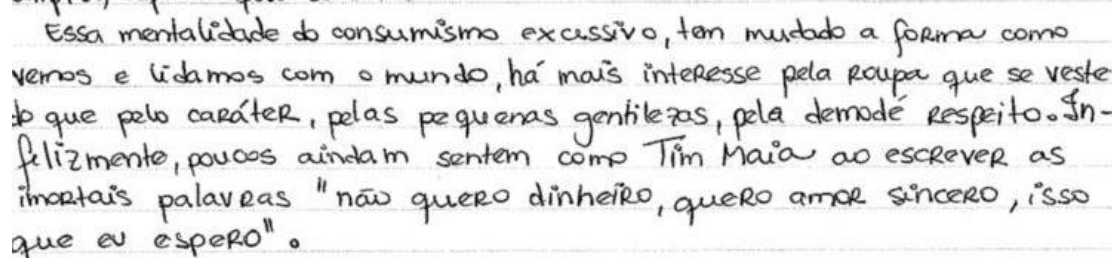 Essa mentalidade do consumismo excessivo, tem mudado a forma como
vemos e lidamos com o mundo, há mais interesse pela roupa que se veste
do que pelo caráter, pelas pequenas gentilezas, pela demodé respeito. In-
felizmente, poucos aindam sentem como Tim Maia ao escrever as
imortais palavras "não quero dinheiro, quero amor sincero, isso
que eu espero".